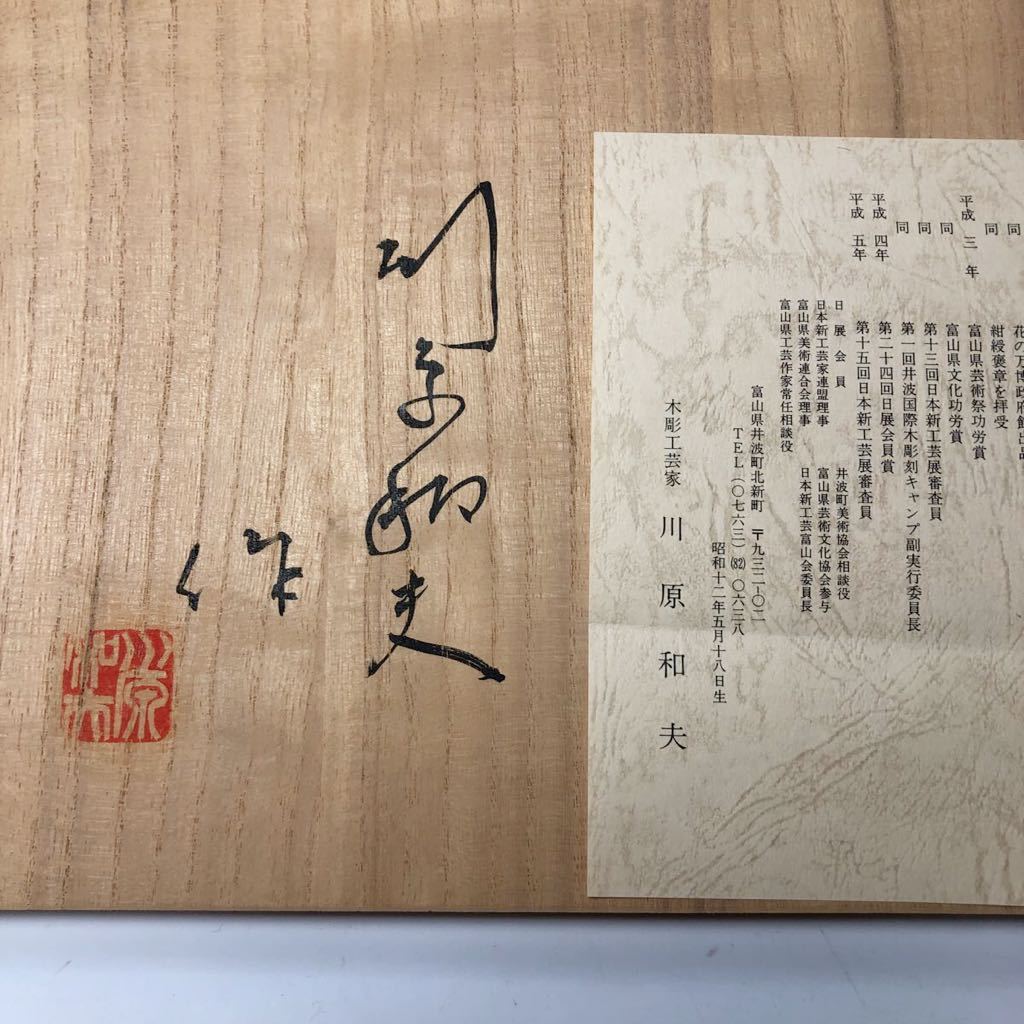 同 花の万博政府館出品
同 紺綬褒章を拝受
平成 三 年 富山県芸術祭功労賞
同 富山県文化功労賞
同 第十三回日本新工芸展審査員
同 第一回井波国際木彫刻キャンプ副実行委員長
平成 四年 第二十四回日展会員賞
平成 五年 第十五回日本新工芸展審査員
日 展 会 員 井波町美術協会相談役
日本新工芸家連盟理事 富山県芸術文化協会参与
富山県美術連合会理事 日本新工芸富山会委員長
富山県工芸作家常任相談役
富山県井波町北新町 〒九三二-〇二
TEL(〇七六三)(82)〇六三八
昭和十二年五月十八日生
木彫工芸家 川 原 和 夫
川原和夫
作